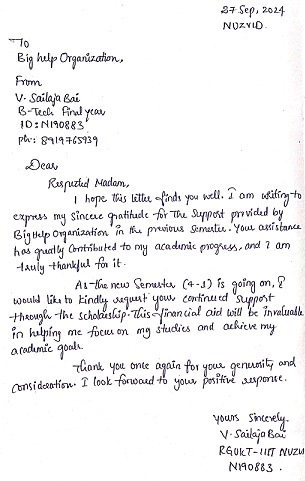 27 Sep, 2024
NUZVID.
To
Big help Organization,
From
V. Sailaja Bai
B-Tech Final year
ID: N190883
ph: 8919765939
Dear
Respected Madam,
I hope this letter finds you well. I am writing to
express my sincere gratitude for the support provided by
BigHelp Organization in the previous Semester. Your assistance
has greatly contributed to my academic progress, and I am
truly thankful for it.
As the new Semester (4-1) is going on, I
would like to kindly request your continued support
through the scholarship. This financial aid will be invaluable
in helping me focus on my studies and achieve my
academic goals.
Thank you once again for your generosity and
consideration. I look forward to your positive response.
Yours Sincerely.
V. Sailaja Bai
RGUKT-IIIT NUZV
N190883.